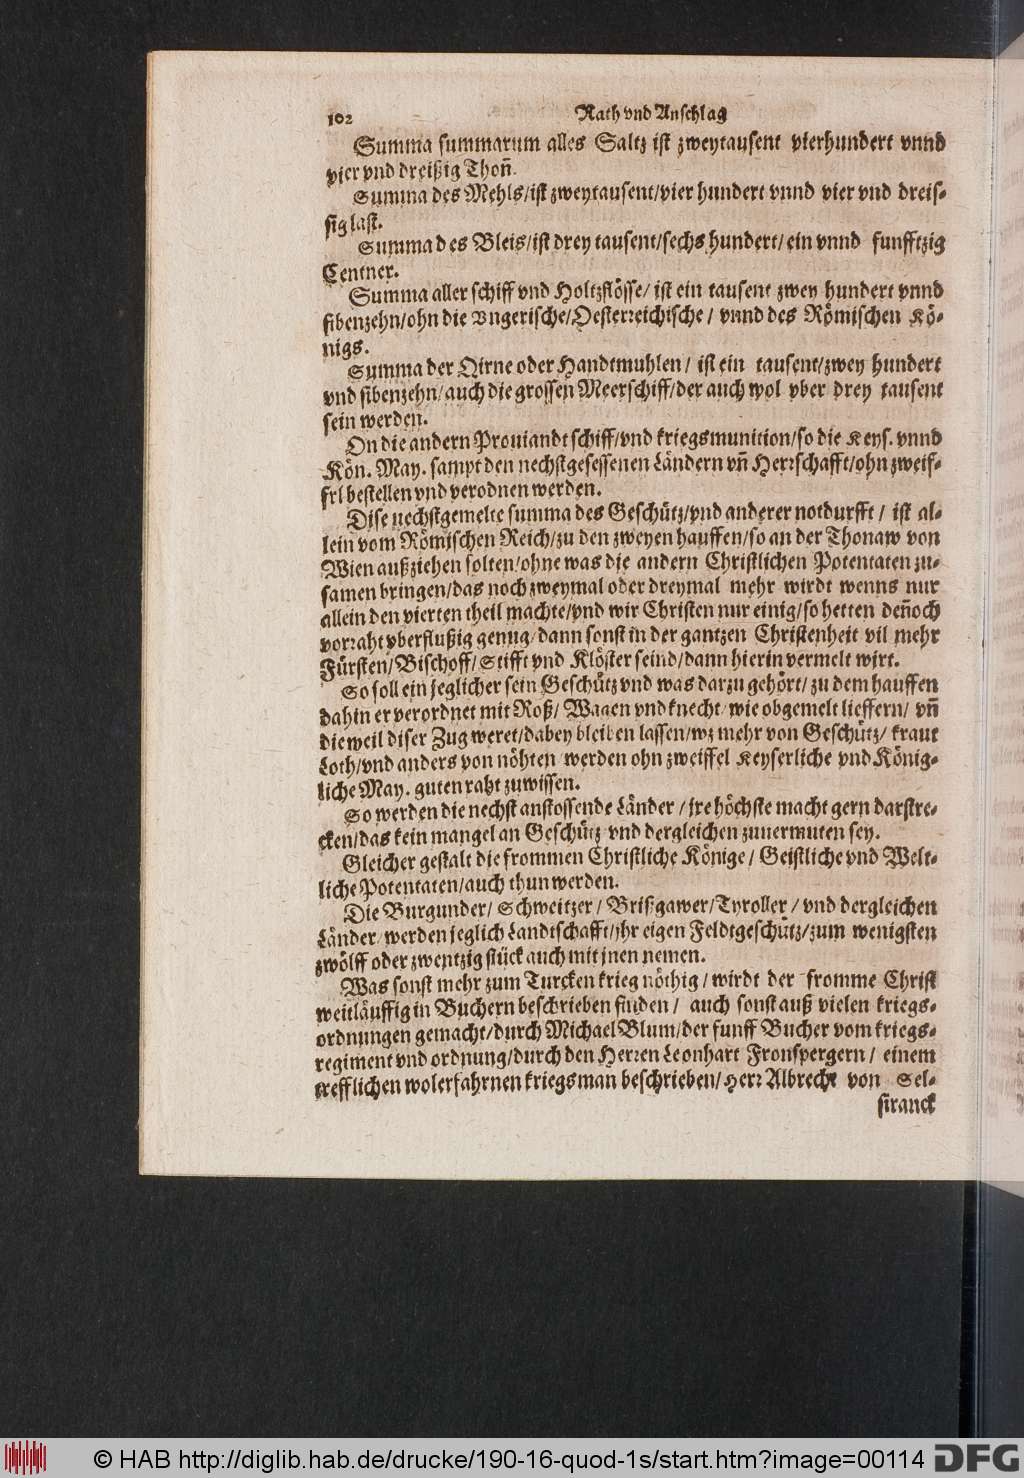 102 Rath vnd Anschlag
Summa summarum alles Saltz ist zweytausent vierhundert vnnd
vier vnd dreißig Thoñ.
Summa des Mehls/ist zweytausent/vier hundert vnnd vier vnd dreis-
sig last.
Summa des Bleis/ist drey tausent/sechs hundert/ein vnnd funfftzig
Centner.
Summa aller schiff vnd Holtzflösse/ ist ein tausent zwey hundert vnnd
sibenzehn/ohn die Vngerische/Oesterreichische/ vnnd des Römischen Kö-
nigs.
Summa der Qirne oder Handtmuhlen/ ist ein tausent/zwey hundert
vnd sibenzehn/auch die grossen Meerschiff/der auch wol vber drey tausent
sein werden.
On die andern Prouiandt schiff/vnd kriegsmunition/so die Keys. vnnd
Kön. May. sampt den nechstgesessenen Ländern vñ Herrschafft/ohn zweif-
frl bestellen vnd verodnen werden.
Dise nechstgemelte summa des Geschütz/vnd anderer notdurfft/ ist al-
lein vom Römischen Reich/zu den zweyen hauffen/so an der Thonaw von
Wien außziehen solten/ohne was die andern Christlichen Potentaten zu-
samen bringen/das noch zweymal oder dreymal mehr wirdt wenns nur
allein den vierten theil machte/vnd wir Christen nur einig/so hetten deñoch
vorraht vberflußig genug/dann sonst in der gantzen Christenheit vil mehr
Fürsten/Bischoff/Stifft vnd Klöster seind/dann hierin vermelt wirt.
So soll ein jeglicher sein Geschütz vnd was darzu gehört/ zu dem hauffen
dahin er verordnet mit Roß/ Wagen vnd knecht/wie obgemelt lieffern/ vñ
die weil diser Zug weret/dabey bleiben lassen/wz mehr von Geschütz/ kraut
Loth/vnd anders von nöhten/werden ohn zweiffel Keyserliche vnd König-
liche May. guten raht zuwissen.
So werden die nechst anstossende Länder/ jre höchste macht gern darstre-
cken/das kein mangel an Geschütz/vnd dergleichen zuuermuten sey.
Gleicher gestalt die frommen Christliche Könige/ Geistliche vnd Welt-
liche Potentaten/auch thun werden.
Die Burgunder/ Schweitzer/ Brißgawer/Tyroller/ vnd dergleichen
Länder/werden jeglich Landtschafft/jhr eigen Feldtgeschütz/zum wenigsten
zwölff oder zwentzig stück auch mit jnen nemen.
Was sonst mehr zum Turcken krieg nöthig/ wirdt der fromme Christ
weitläuffig in Buchern beschrieben finden/ auch sonst auß vielen kriegs-
ordnungen gemacht/durch Michael Blum/der funff Bucher vom kriegs-
regiment vnd ordnung/durch den Herren Leonhart Fronspergern/ einem
trefflichen wolerfahrnen kriegsman beschrieben/Herr Albrecht von Sel-
stranck
© HAB http://diglib.hab.de/drucke/190-16-quod-1s/start.htm?image=00114
DFG